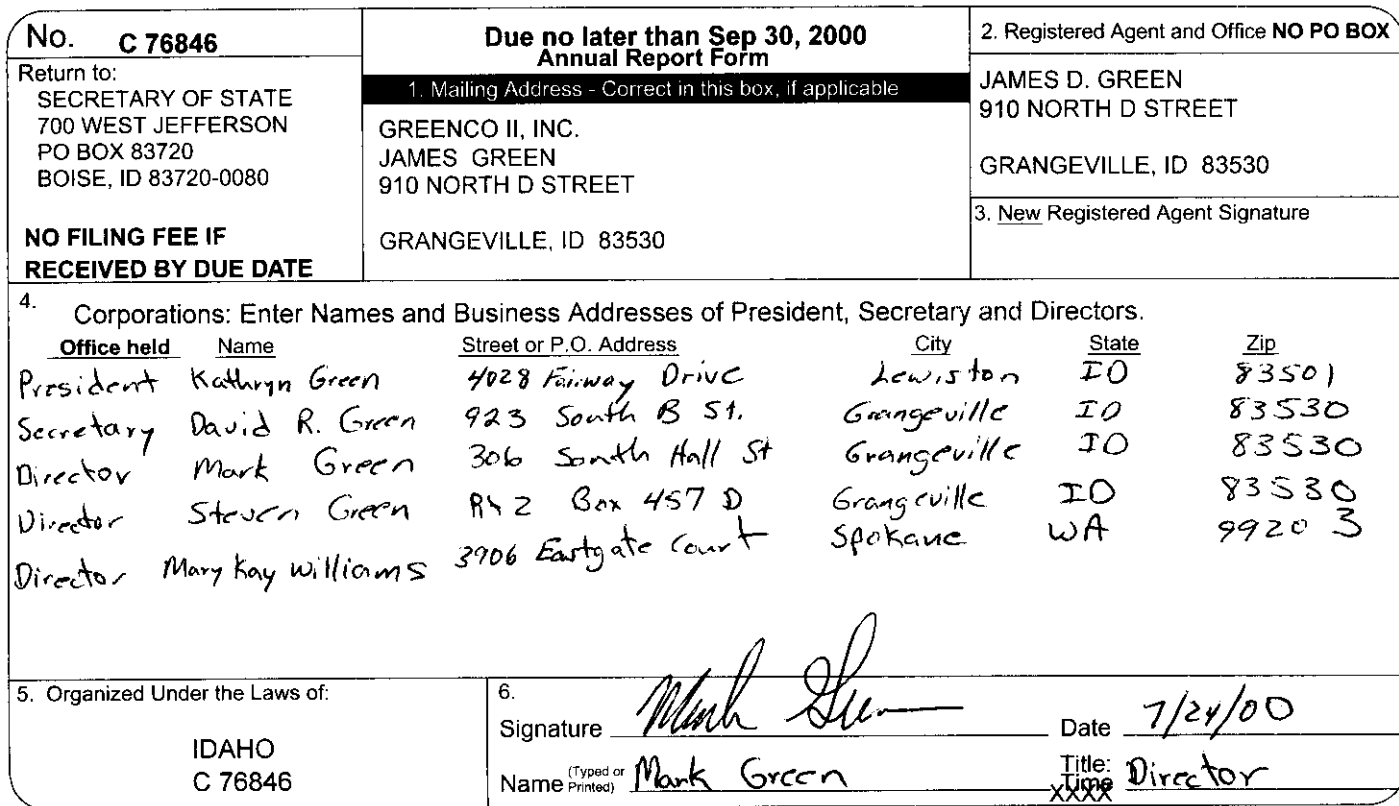 No. C 76846
Return to:
SECRETARY OF STATE
700 WEST JEFFERSON
PO BOX 83720
BOISE, ID 83720-0080
NO FILING FEE IF
RECEIVED BY DUE DATE
Due no later than Sep 30, 2000
Annual Report Form
1. Mailing Address - Correct in this box, if applicable
GREENCO II, INC.
JAMES GREEN
910 NORTH D STREET
GRANGEVILLE, ID 83530
2. Registered Agent and Office NO PO BOX
JAMES D. GREEN
910 NORTH D STREET
GRANGEVILLE, ID 83530
3. New Registered Agent Signature
4. Corporations: Enter Names and Business Addresses of President, Secretary and Directors.
Office held Name Street or P.O. Address City State Zip
President Kathryn Green 4028 Fairway Drive Lewiston ID 83501
Secretary David R. Green 923 South B St. Grangeville ID 83530
Director Mark Green 306 South Hall St Grangeville ID 83530
Director Steven Green Rt 2 Box 457 D Grangeville ID 83530
Director Mary Kay Williams 3906 Eastgate Court Spokane WA 99203
5. Organized Under the Laws of:
IDAHO
C 76846
6.
Signature Mark Green Date 7/24/00
Name (Typed or Printed) Mark Green Title: Director